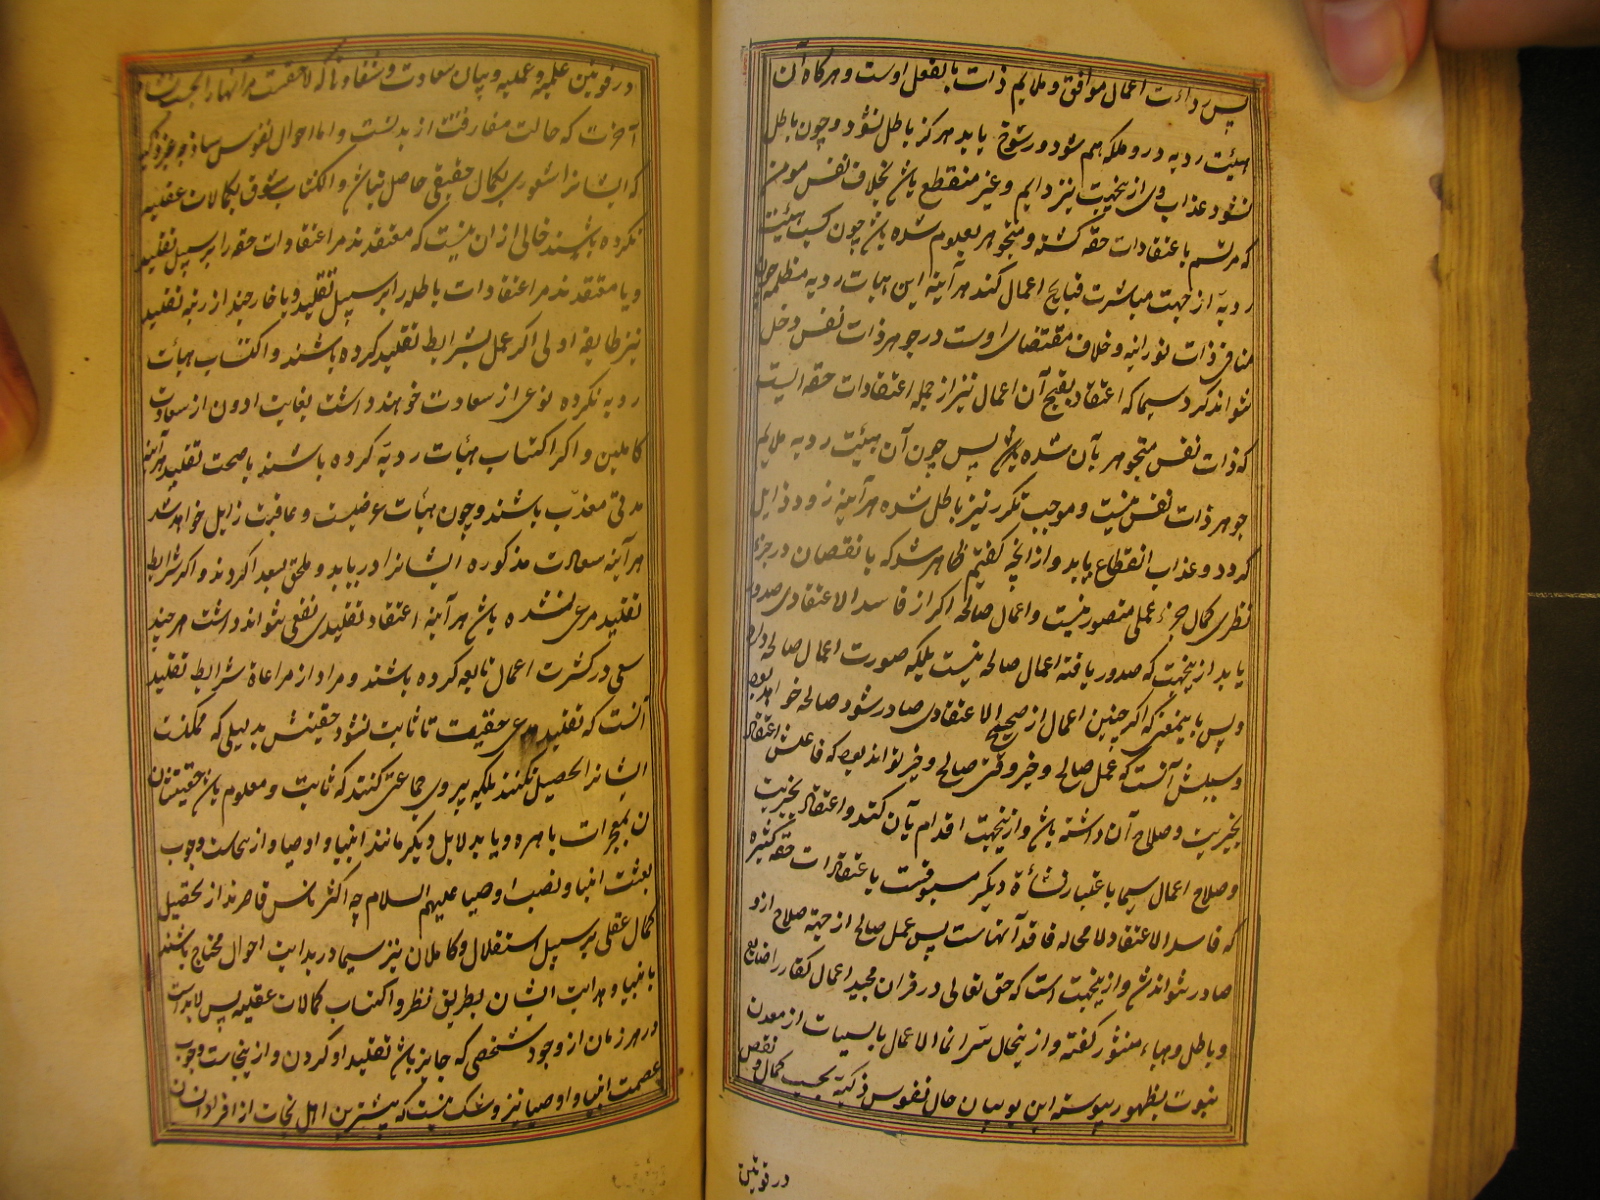 پس رداءت اعمال موافق و ملایم ذات بالفعل اوست و هرگاه آن
هیئت ردیه در و ملکه هم شود و رسوخ یابد هرگز باطل نشود و چون باطل
نشود عذاب وی ازینجهت نیز دایم و غیر منقطع باشد بخلاف نفس مومن
که مرتسم باعتقادات حقه گشته و متجوهر بعلوم شده باشد چون کسب هیئت
ردیه از جهت مباشرت قبایح اعمال کند هرآینه این هیات ردیه مظلمه چون
منافر ذات نورانیه و خلاف مقتضای اوست در جوهر ذات نفس دخل
نتواند کرد سیما که اعتقاد بقبح آن اعمال نیز از جمله اعتقادات حقه ایست
که ذات نفس متجوهر بآن شده باشد پس چون آن هیئت ردیه ملایم
جوهر ذات نفس نیست و موجب تکرر نیز باطل شده هرآینه زود زایل
گردد و عذاب انقطاع یابد و ازانچه گفتیم ظاهر شد که با نقصان در جزء
نظری کمال جزء عملی متصور نیست و اعمال صالحه اگر از فاسد الاعتقادی صدور
یابد ازینجهت که صدور یافته اعمال صالحه نیست بلکه صورت اعمال صالحه دارد
و پس باینمعنی که اگر چنین اعمال از صحیح الاعتقادی صادر شود صالحه خواهد بود
و سببش آنست که عمل صالح و خیر وقتی صالح و خیر تواند بود که فاعلش اعتقاد
بخیریت و صلاح آن داشته باشد و ازینجهت اقدام بآن کند و اعتقاد بخیریت
و صلاح اعمال سیما باعتبار نشأة دیگر مسبوقست باعتقادات حقه کثیره
که فاسد الاعتقاد لامحاله فاقد آنهاست پس عمل صالح از جهة صلاح ازو
صادر نتواند شد و ازینجهت است که حق تعالی در قران مجید اعمال کفار را ضایع
و باطل و هباء منثور گفته و ازینحال سر انما الاعمال بالنیات از معدن
نبوت بظهور پیوسته این بود بیان حال نفوس ذکیه بحسب کمال و نقص
در قوتین
در قوتین علمیه و عملیه و بیان سعادت و شقاوتی که لاحقست مر آنها را بحسب نشاه
آخرت که حالت مفارقت از بدنست و اما احوال نفوس ساذجه غیر ذکیه
که ایشانرا شعوری بکمال حقیقی حاصل نباشد و اکتساب شوق بکمالات عقلیه
نکرده باشند خالی ازان نیست که معتقدند مر اعتقادات حقه را بر سبیل تقلید
و یا معتقدند مر اعتقادات باطله را بر سبیل تقلید و یا خارجند از ربقه تقلید
نیز طایفه اولی اگر عمل بشرایط تقلید کرده باشند و اکتساب هیأت
ردیه نکرده نوعی از سعادت خواهند داشت بغایت ادون از سعادت
کاملین و اگر اکتساب هیأت ردیه کرده باشند با صحت تقلید هرآینه
مدتی معذب باشند و چون هیأت عرضیست و عاقبت زایل خواهد شد
هرآینه سعادت مذکوره ایشانرا دریابد و ملحق بسعدا گردند و اگر شرایط
تقلید مرعی نشده باشد هرآینه اعتقاد تقلیدی نفعی نتواند داشت هرچند
سعی در کثرت اعمال تابعه کرده باشند و مراد از مراعاة شرایط تقلید
آنست که تقلید مدعی حقیقت تا ثابت نشود حقیتش بدلیلی که ممکنست
ایشانرا تحصیل نکنند بلکه پیروی جماعتی کنند که ثابت و معلوم باشد حقیتشان
ن بمعجزات باهره و یا بدلایل دیگر مانند انبیا و اوصیا و ازینجاست وجوب
بعثت انبیا و نصب اوصیا علیهم السلام چه اکثر ناس قاصرند از تحصیل
کمال عقلی بر سبیل استقلال و کاملان نیز سیما در بدایت احوال محتاج باشند
بانبیا و هدایت ایشان بطریق نظر و اکتساب کمالات عقلیه پس لابدست
در هر زمان از وجود شخصی که جایز باشد تقلید او کردن و ازینجاست وجوب
عصمت انبیا و اوصیا نیز و شک نیست که بیشترین اهل نجات از افراد انسان